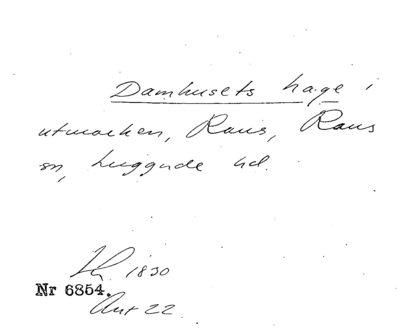 Damhusets hage i
utmarken, Raus, Raus
sn, Luggude hd.
1830
Nr 6854.
Akt 22